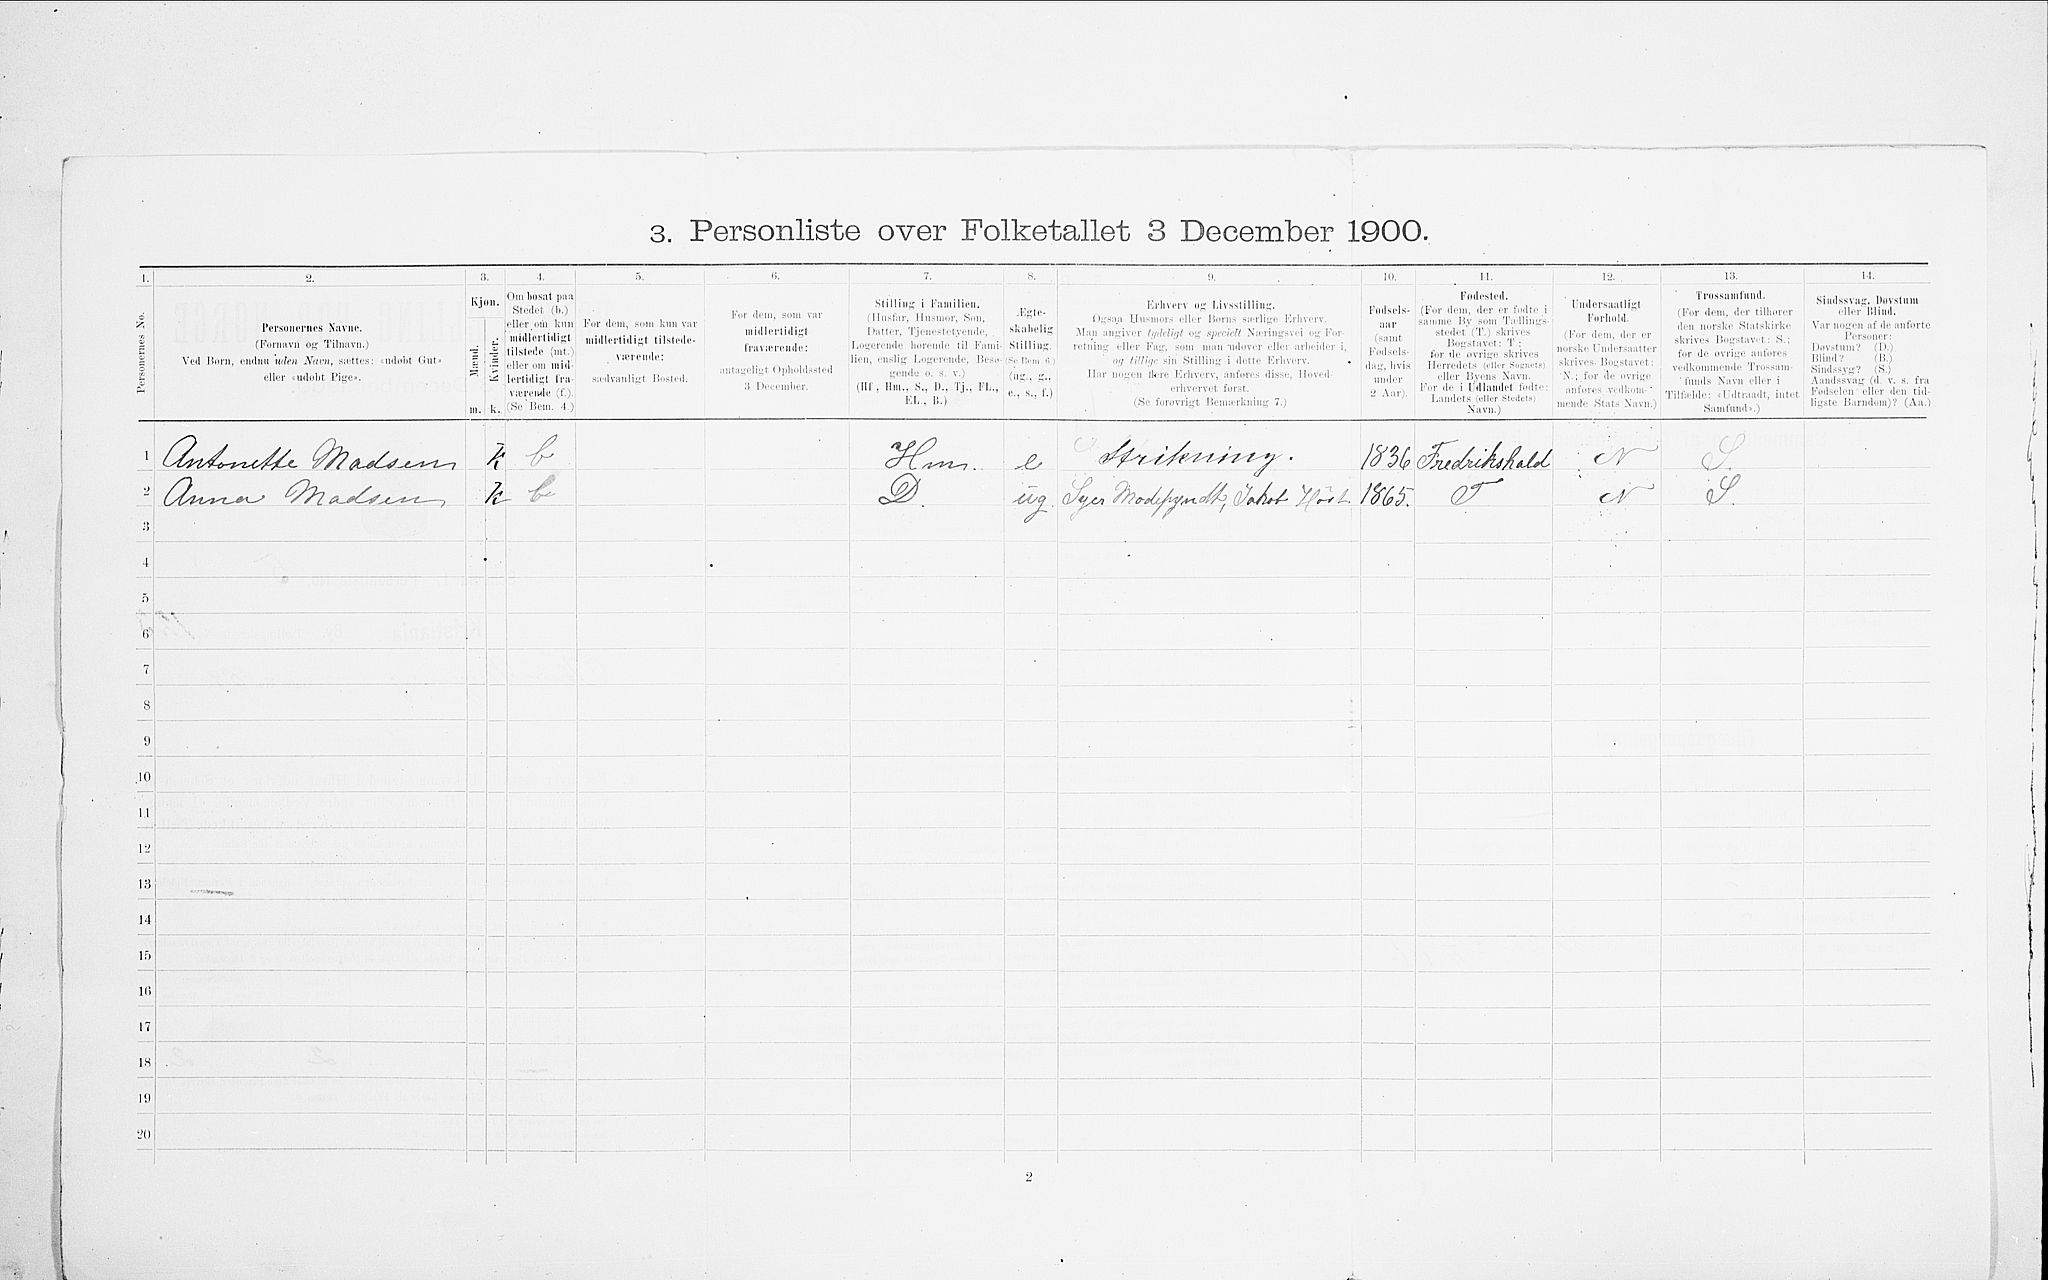 3. Personliste over Folketallet 3 December 1900.
1. 2. 3. 4. 5. 6. 7. 8. 9. 10. 11. 12. 13. 14.
Personernes No.
Personernes Navne.
(Fornavn og Tilnavn.)
Ved Børn, endnu uden Navn, sættes: «udøbt Gut»
eller «udøbt Pige».
Kjøn.
Mænd.
Kvinder.
m. k.
Om bosat paa
Stedet (b.)
eller om kun
midlertidigt
tilstede (mt.)
eller om mid-
lertidigt fra-
værende (f.).
(Se Bem. 4.)
For dem, som kun var
midlertidigt tilstede-
værende:
sædvanligt Bosted.
For dem, som var
midlertidigt
fraværende:
antageligt Opholdssted
3 December.
Stilling i Familien.
(Husfar, Husmor, Søn,
Datter, Tjenestetyende,
Logerende hørende til Fami-
lien, enslig Logerende, Besø-
gende o. s. v.)
(Hf., Hm., S., D., Tj., FL.,
EL., B.)
Ægte-
skabelig
Stilling.
(Se Bem. 6.)
(ug., g.,
e., s., f.)
Erhverv og Livsstilling.
Ogsaa Husmors eller Børns særlige Erhverv.
Man angiver tydeligt og specielt Næringsvei og For-
retning eller Fag, som man udøver eller arbeider i,
og tillige sin Stilling i dette Erhverv.
Har nogen flere Erhverv, anføres disse, Hoved-
erhvervet først.
(Se forøvrigt Bemærkning 7.)
Fødsels-
aar
(samt
Fødsels-
dag, hvis
under
2 Aar).
Fødested.
(For dem, der er fødte i
samme By som Tællings-
stedet (T.) skrives
Bogstavet: T.;
for de øvrige skrives
Herredets (eller Sognets)
eller Byens Navn.
For de i Udlandet fødte:
Landets (eller Stedets)
Navn.)
Undersaatligt
Forhold.
(For dem, der er
norske Undersaatter
skrives Bogstavet:
N.; for de øvrige
anføres vedkom-
mende Stats Navn.)
Trossamfund.
(For dem, der tilhører
den norske Statskirke
skrives Bogstavet: S.;
for de øvrige anføres
vedkommende Trossam-
funds Navn eller i
Tilfælde: «Udtraadt, intet
Samfund».)
Sindssvag, Døvstum
eller Blind.
Var nogen af de anførte
Personer:
Døvstum? (D.)
Blind? (B.)
Sindssyg? (S.)
Aandssvag (d. v. s. fra
Fødselen eller den tid-
ligste Barndom)? (Aa.)
1 Antonette Madsen k b Hm. e Strikning. 1836 Fredrikshald N S.
2 Anna Madsen k b D. ug. Syer Jakob Høst 1865. T N S.
3
4
5
6
7
8
9
10
11
12
13
14
15
16
17
18
19
20
2